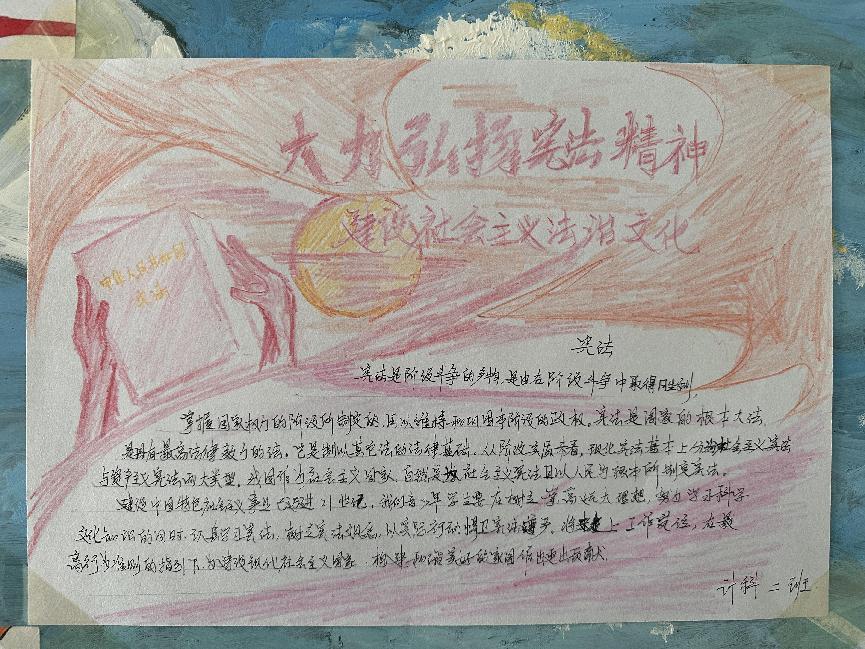 大力弘扬宪法精神
建设社会主义法治文化
中华人民共和国
宪法
宪法
宪法是阶级斗争的产物,是由在阶级斗争中取得胜利,
掌握国家权力的阶级所制定的,用以维持和巩固本阶级的政权。宪法是国家的根本大法,
是具有最高法律效力的法。它是制定其它法的法律基础。从阶级实质看,现代宪法基本上分为社会主义宪法
与资本主义宪法两大类型。我国作为社会主义国家,自然是社会主义宪法且以人民为根本所制定宪法。
建设中国特色社会主义事业已迈进21世纪,我们青少年学生要在树立崇高远大理想,努力学习科学
文化知识的同时,认真学习宪法,树立宪法观念,以实际行动捍卫宪法 将 上工作岗位,在最
高行为准则的指引下,为建设现代化社会主义国家,构建和谐美好的家园作出更出贡献
计科二班